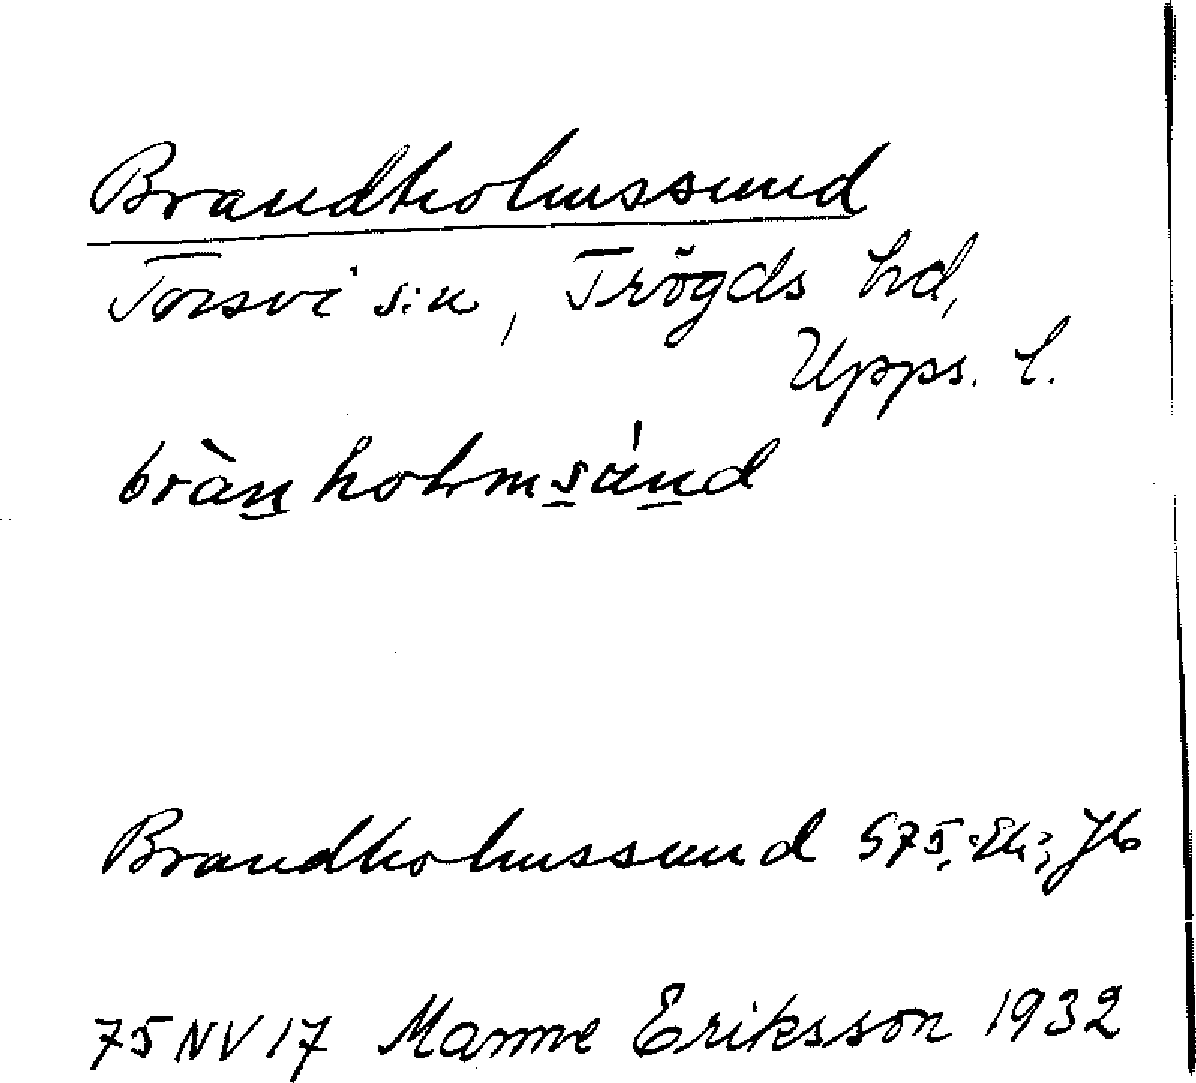 Brandholmssund
Torsvi s:n, Trögds hd,
Upps. l.
brànholmsúnd
Brandholmssund G75; Ek; Jb
75 NV 17 Manne Eriksson 1932